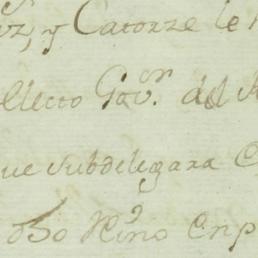 y Catorze le
electo Gov.on del
ue subdelegara
dho Rn.o enp